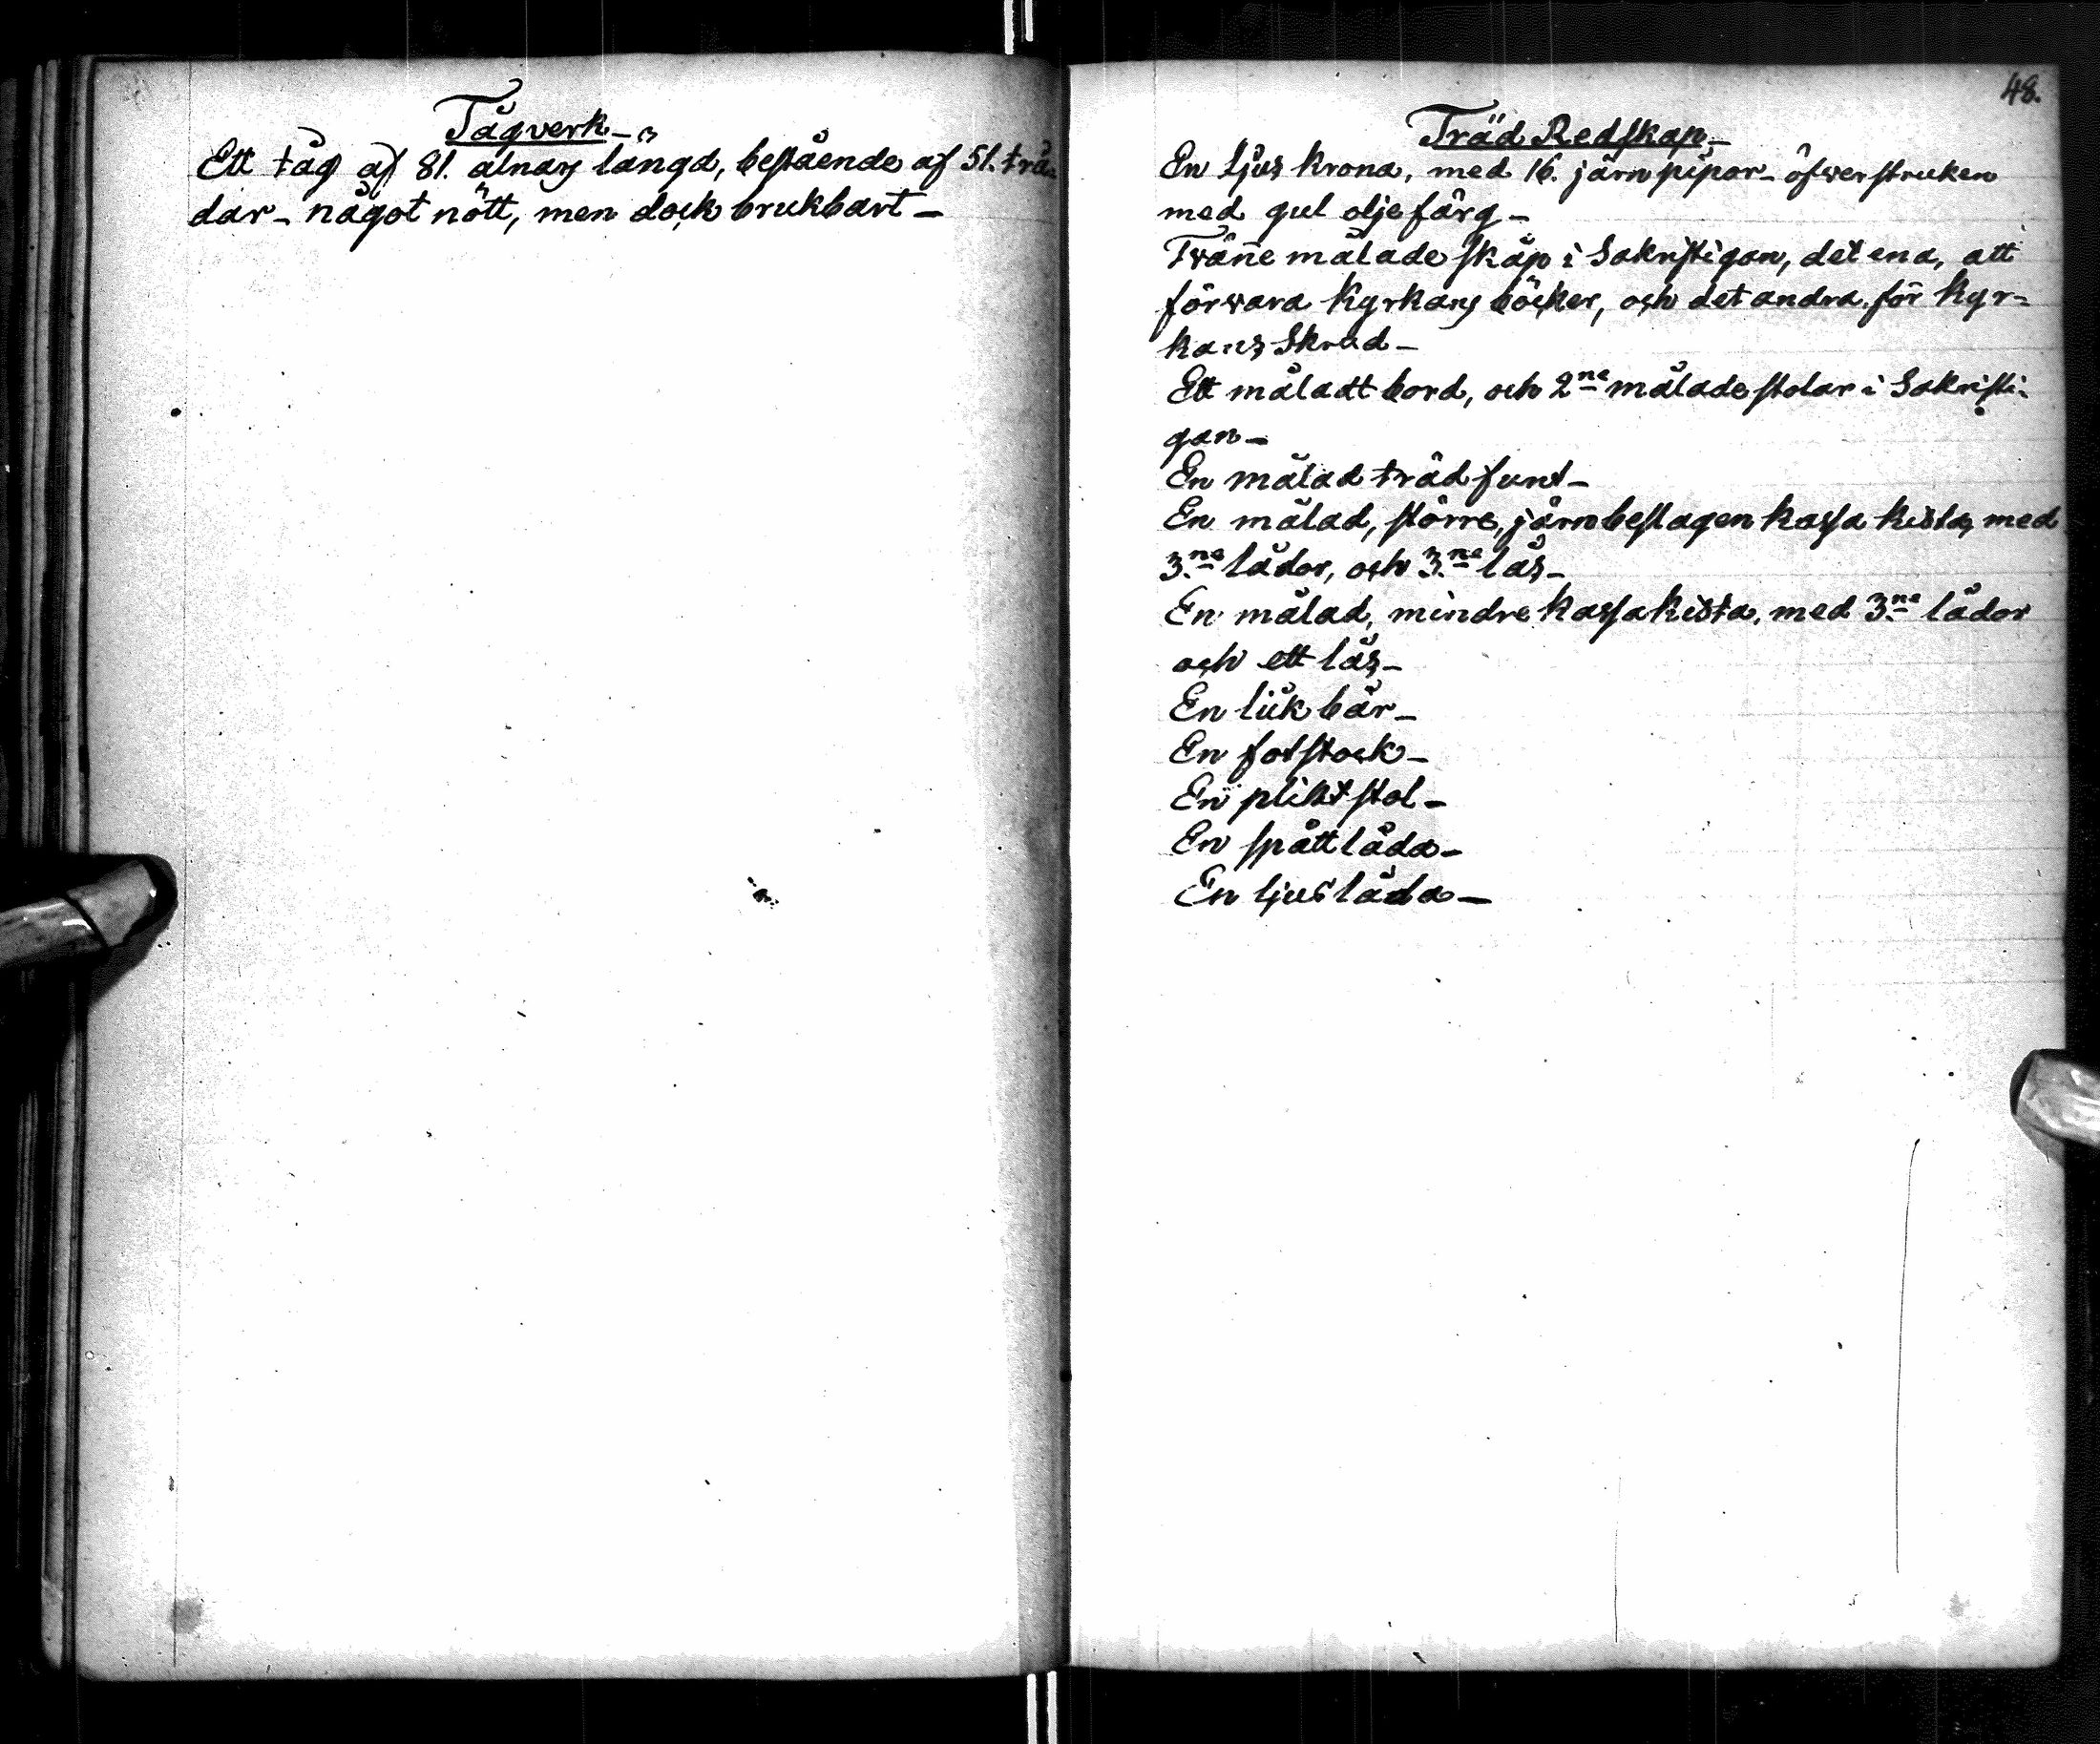 Tågverk_
Ett tåg af 81. alnars längd, bestående af 51. trå=
dar_ något nött, men dock brukbart_
48.
Träd Redskap_
En Ljus krona, med 16. järn pipor_ öfwerstruken
med gul olje färg_
Twäñe målade skåp i Sakristigan, det ena, att
förwara Kyrkans böcker, och det andra, för Kyr=
kans Skrud_
Ett måladt bord, och 2ne målade stolar i Sakristi=
gan_
En målad träd funt_
En målad, större, järnbeslagen kassa kista, med
3.ne lådor, och 3.ne lås_
En målad, mindre kassakista, med 3.ne lådor
och ett lås_
En lik bår_
En fotstock_
En pliktstol_
En spått låda_
En ljus låda_